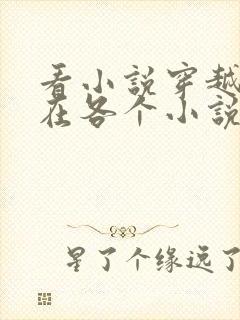 看小说穿越
在各个小说
星了个缘远了